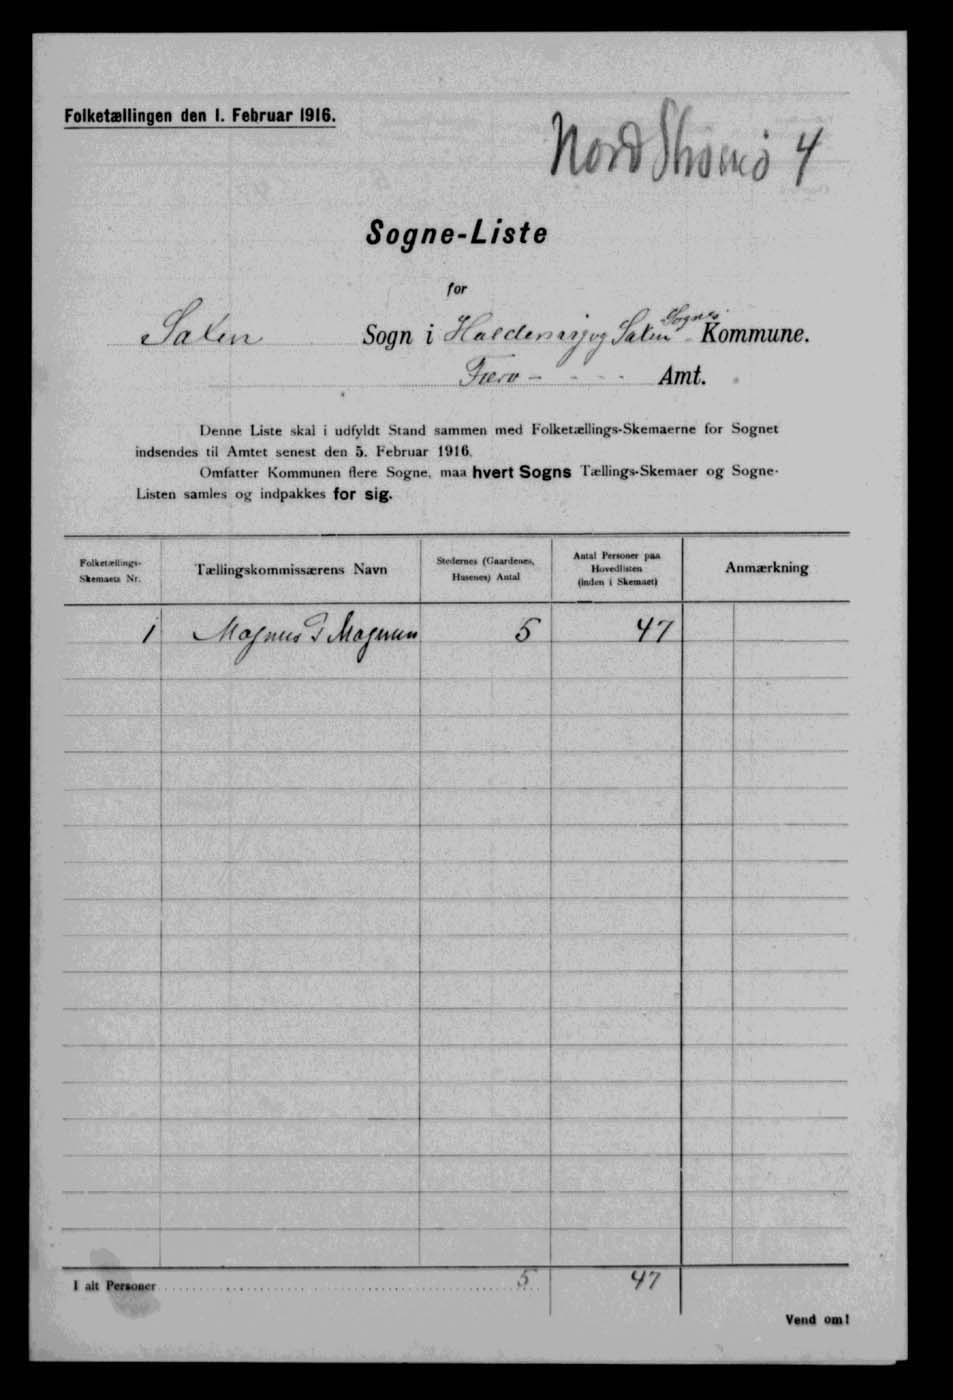 Folketællingen den 1. Februar 1916.
Nord Strømø 4
Sogne-Liste
for
Saxen Sogn i Haldersvig og Saxen Sognes Kommune.
Færø - - - - Amt.
Denne Liste skal i udfyldt Stand sammen med Folketællings-Skemaerne for Sognet
indsendes til Amtet senest den 5. Februar 1916.
Omfatter Kommunen flere Sogne, maa hvert Sogns Tællings-Skemaer og Sogne-
Listen samles og indpakkes for sig.
Folketællings-
Skemaets Nr.
Tællingskommissærens Navn
Stedernes (Gaardenes,
Husenes) Antal
Antal Personer paa
Hovedlisten
(inden i Skemaet)
Anmærkning
1 Magnus Magnussen 5 47
I alt Personer 5 47
Vend om!